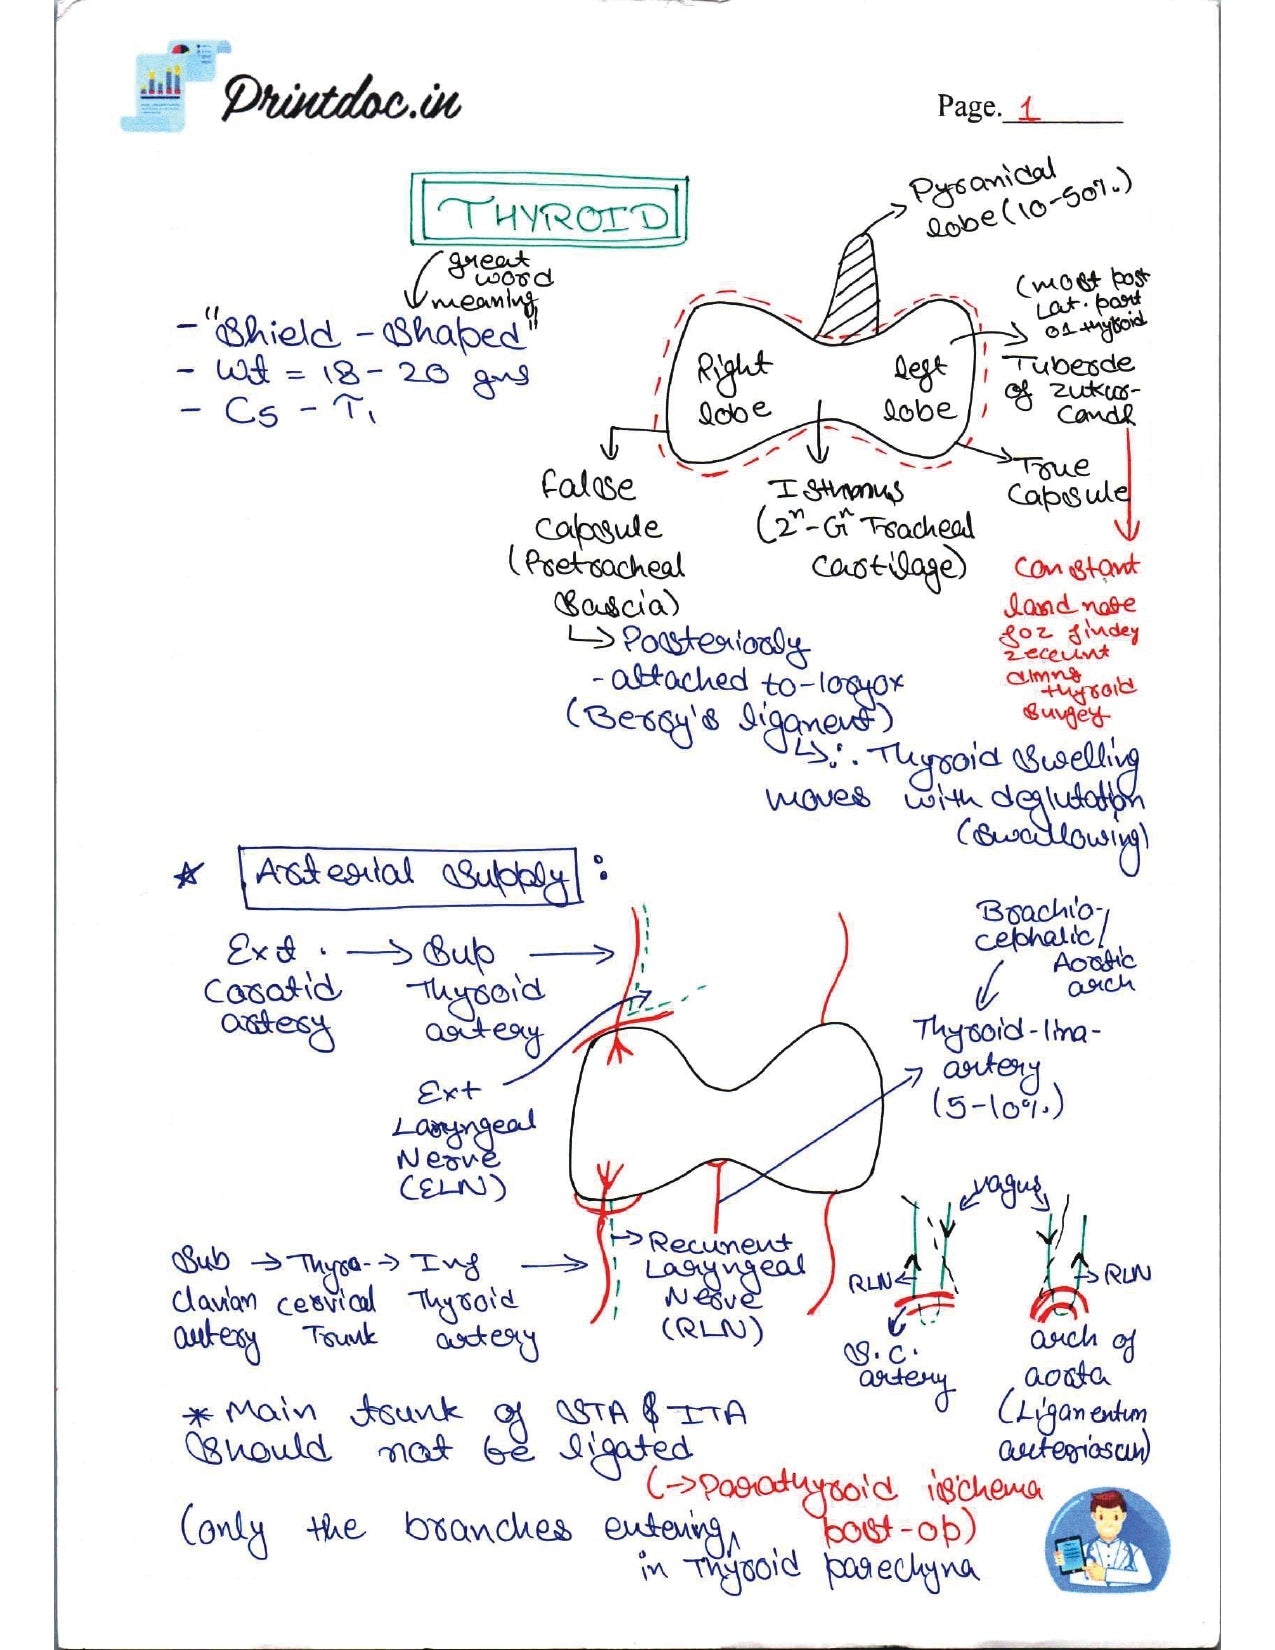 Printdoc.in
Page. 1
THYROID
great
word
meaning
- "Shield - Shaped"
- Wt = 18 - 20 gms
- C5 - T1
Pyramidal
lobe (10-50%.)
(most post
Lat. part
of thyroid
Tubercle
of Zuker-
Candl
Right
lobe
left
lobe
True
Capsule
False
Capsule
(Pretracheal
fascia)
Isthmus
(2n - Gn Tracheal
Cartilage)
Constant
land
for
thyroid
↳ Posteriorly
- attached to - 
(Berry's ligament)
↳ ∴ Thyroid Swelling
moves with deglutation
(Swallowing)
* Arterial Supply :
Ext. → Sup →
Carotid Thyroid
artery artery
Ext
Laryngeal
Nerve
(ELN)
Brachio-
cephalic/
Aortic
arch
Thyroid-Ima-
artery
(5-10%.)
Sub → Thyro- → Inf →
Clavian cervical Thyroid
artery Trunk artery
→ Recurrent
Laryngeal
Nerve
(RLN)
vagus
RLN
RLN
S.C.
artery
arch of
aorta
(Ligamentum
* Main trunk of STA & ITA
Should not be ligated
(→ Parathyroid ischema
post-op)
(only the branches entering
in Thyroid parechyna